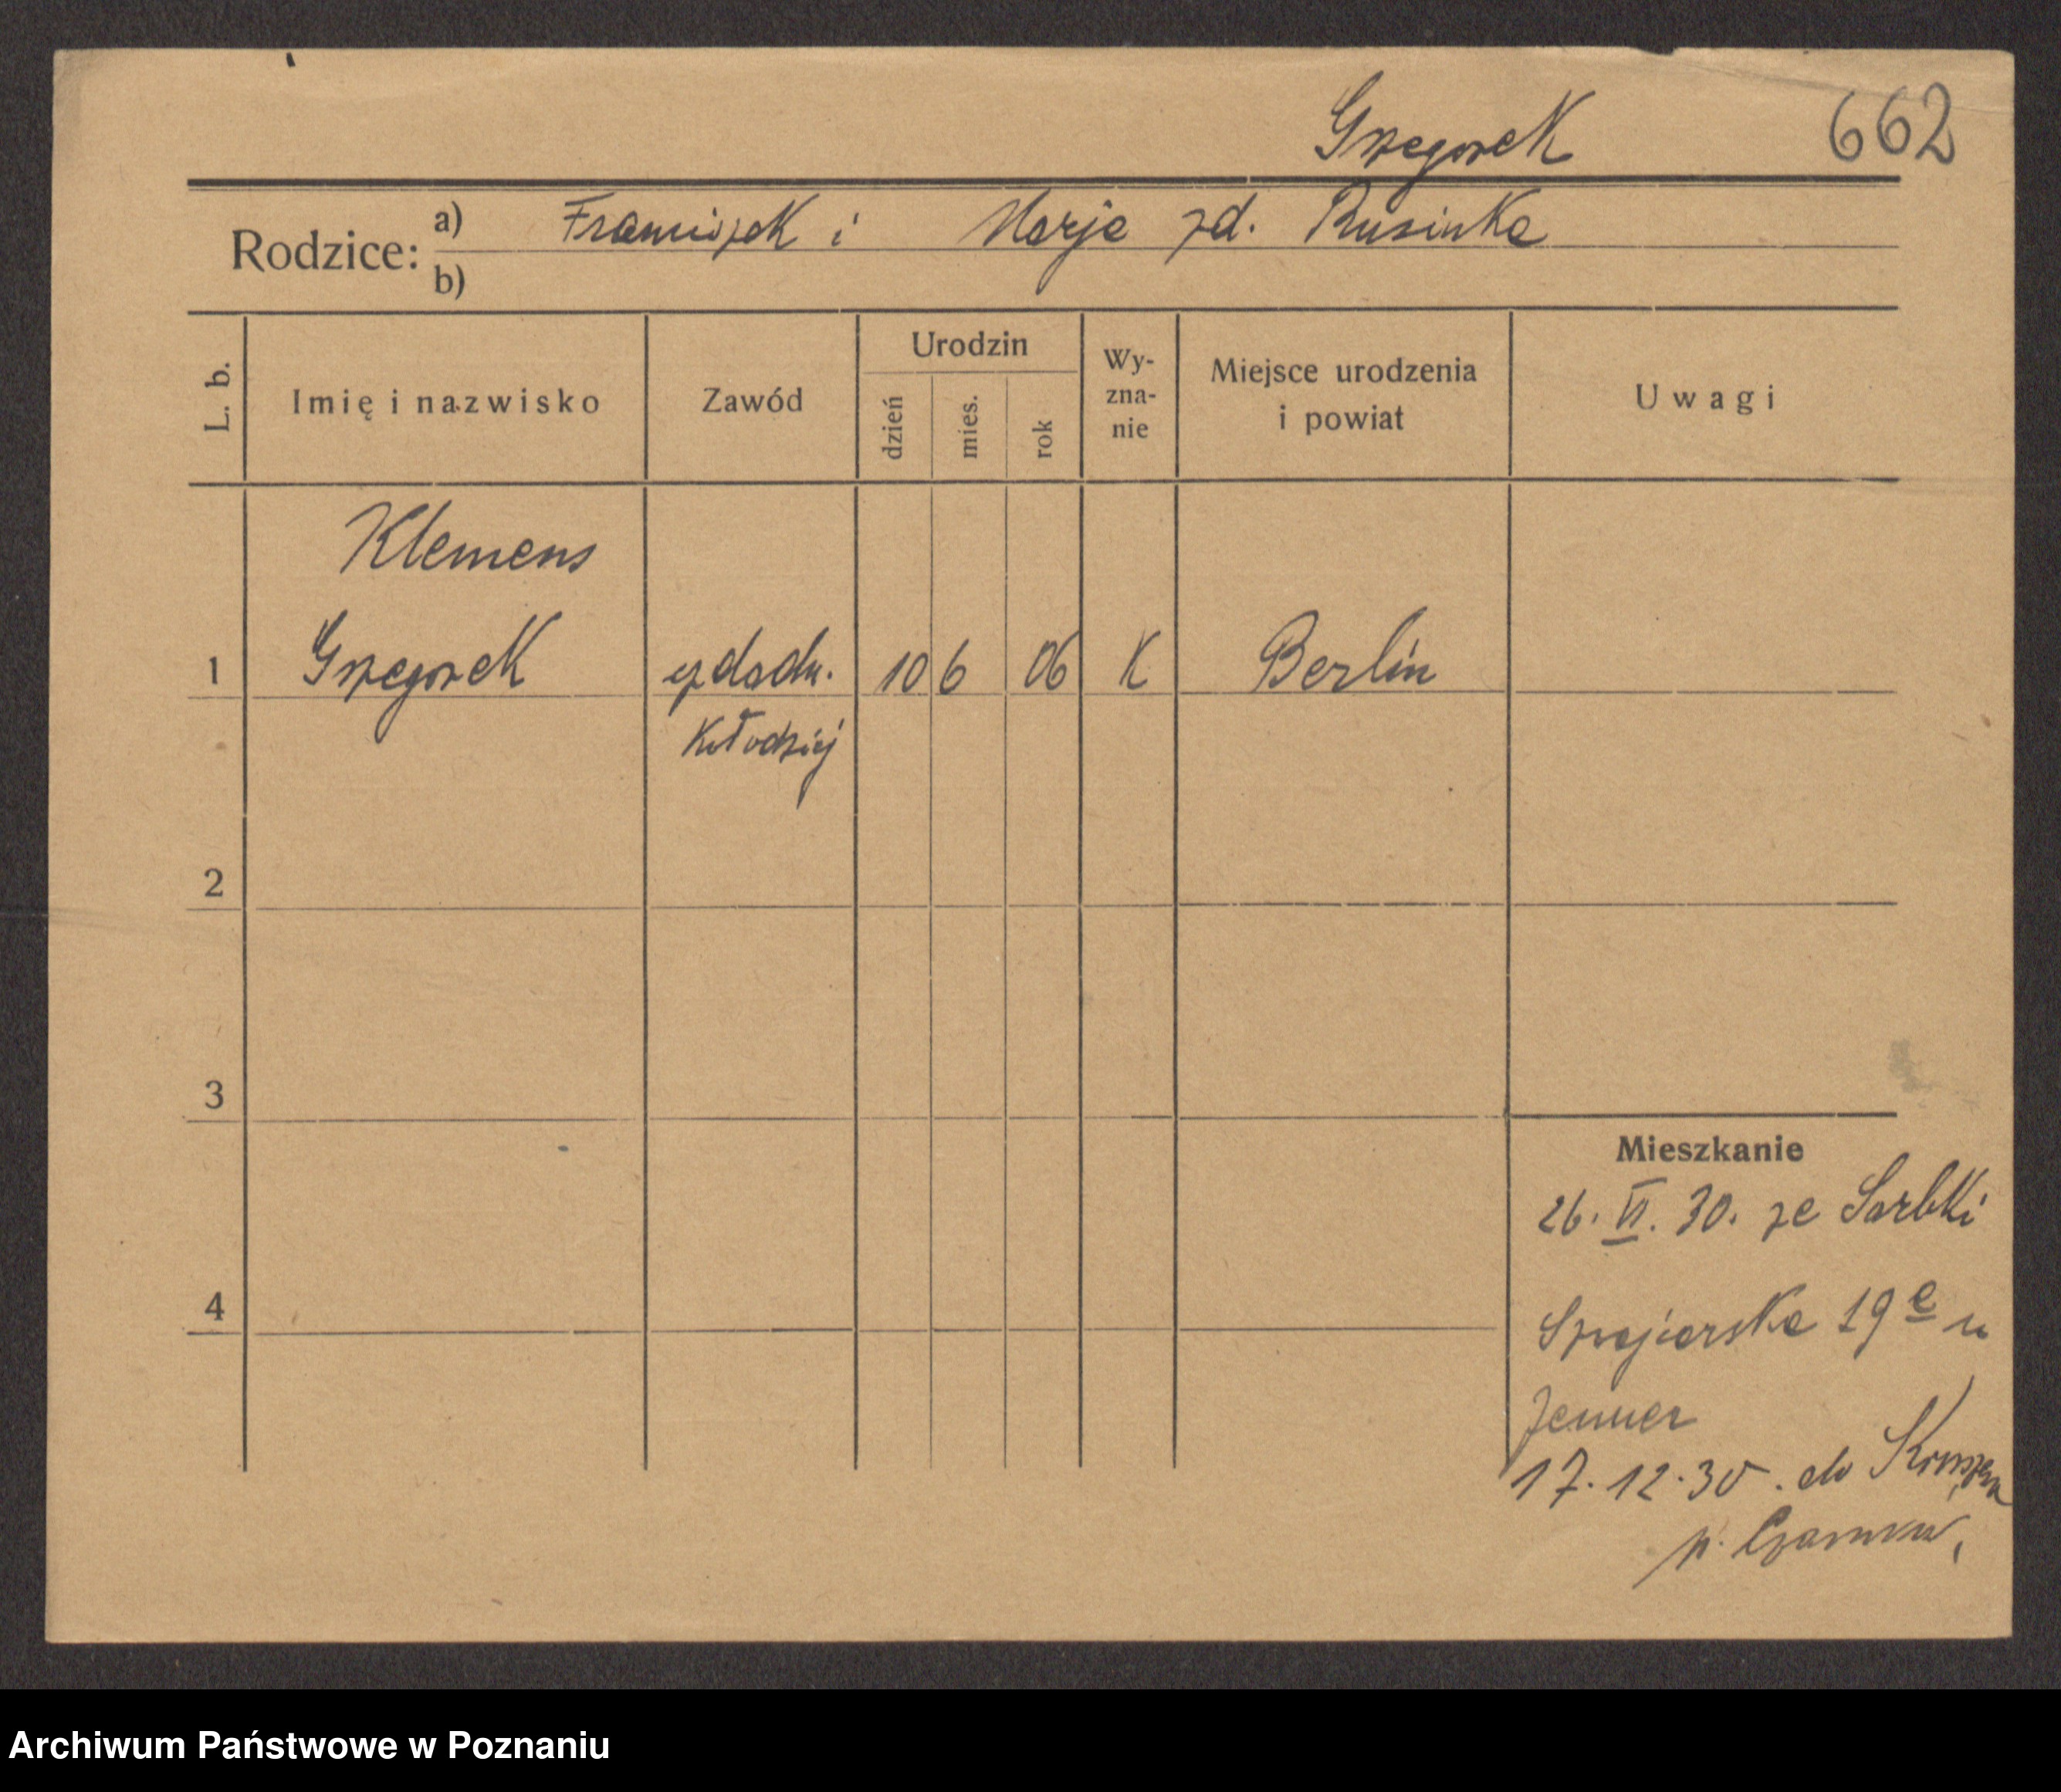 Grzegorek 662
Rodzice: a) Franciszek i Marja zd. Rusinka
b)
L. b. Imię i nazwisko Zawód Urodzin dzień mies. rok Wyznanie Miejsce urodzenia i powiat Uwagi
Klemens
1 Grzegorek czeladn. 10 6 06 K Berlin
Kołodziej
2
3
Mieszkanie
26. VI. 30. ze Sarbki
4
19 e u
Jenner
17. 12. 30. do
p. Czarnków
Archiwum Państwowe w Poznaniu